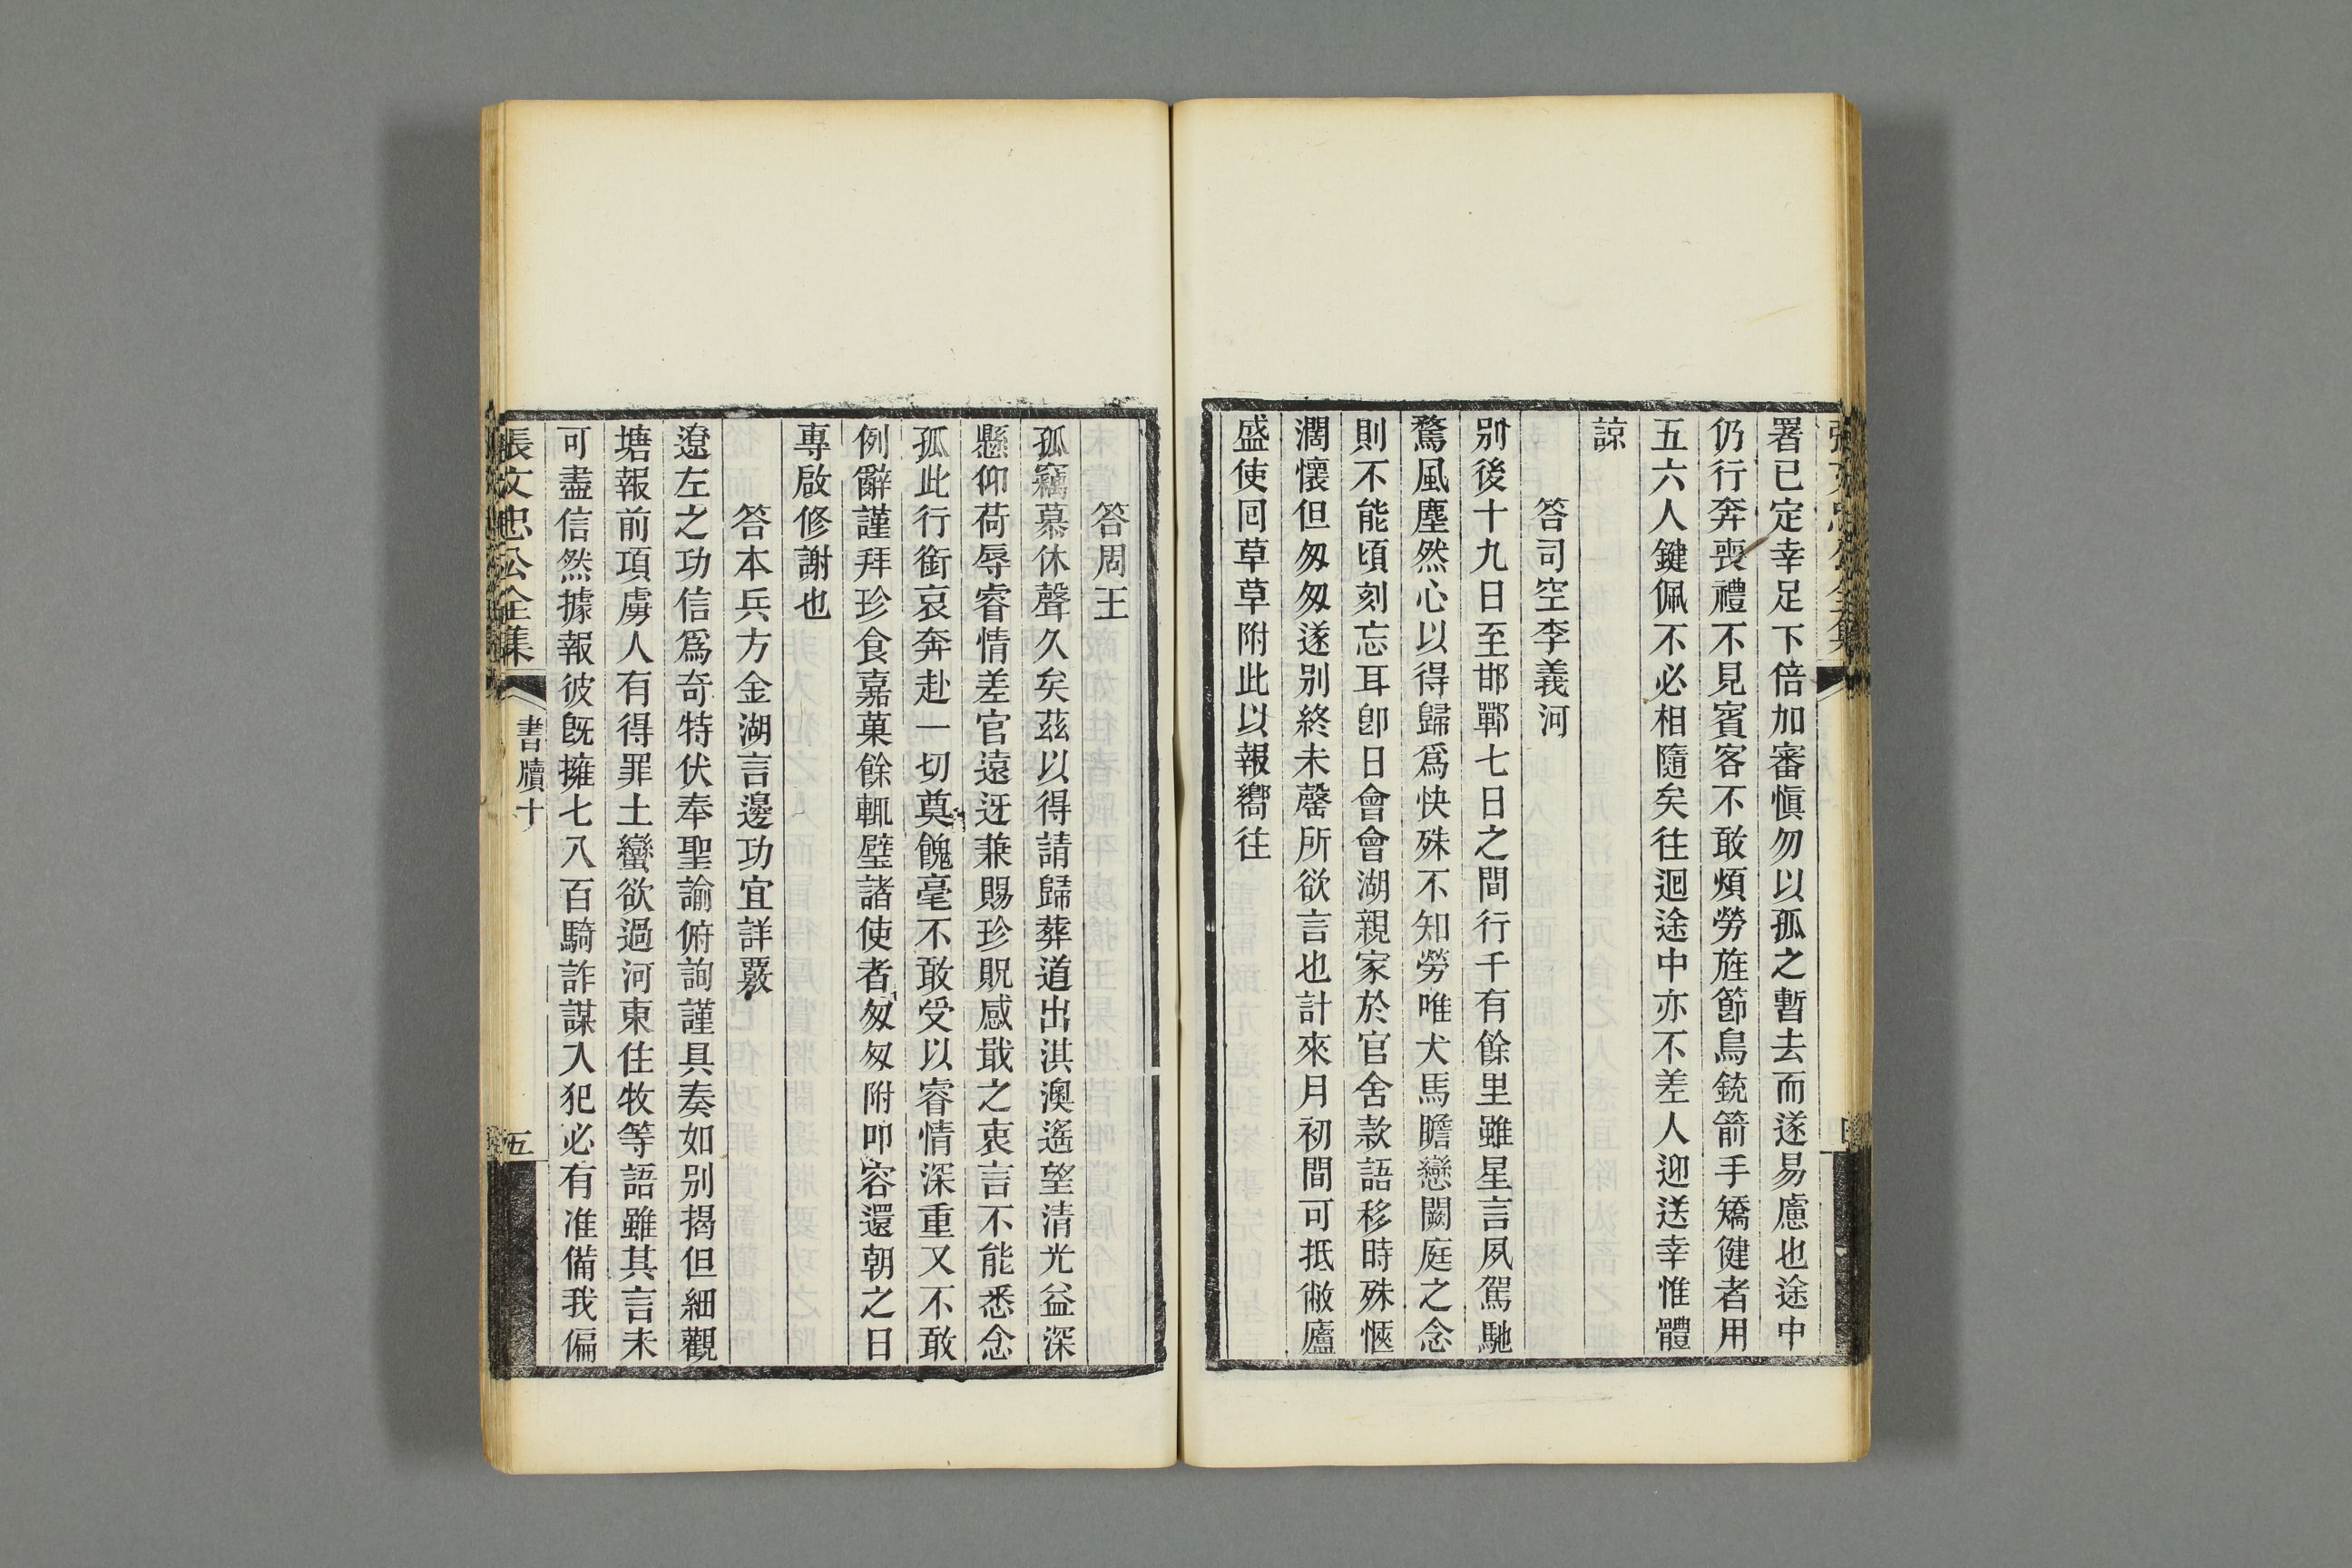 張文忠公全集
署已定幸足下倍加審愼勿以孤之暫去而遂易慮也途中
仍行奔喪禮不見賓客不敢煩勞旌節鳥銃箭手矯健者用
五六人鍵佩不必相隨矣往迴途中亦不差人迎送幸惟體
諒
答司空李義河
別後十九日至邯鄲七日之間行千有餘里雖星言夙駕馳
騖風塵然心以得歸爲快殊不知勞唯犬馬瞻戀闕庭之念
則不能頃刻忘耳卽日會會湖親家於官舍款語移時殊愜
濶懷但匆匆遂別終未罄所欲言也計來月初間可抵敝廬
盛使回草草附此以報嚮往
答周王
孤竊慕休聲久矣茲以得請歸葬道出淇澳遙望清光益深
懸仰荷辱睿情差官遠迓兼賜珍貺感戢之衷言不能悉念
孤此行銜哀奔赴一切奠餽毫不敢受以睿情深重又不敢
例辭謹拜珍食嘉菓餘輒璧諸使者匆匆附叩容還朝之日
專啟修謝也
答本兵方金湖言邊功宜詳覈
遼左之功信爲奇特伏奉聖諭俯詢謹具奏如別揭但細觀
塘報前項虜人有得罪土蠻欲過河東住牧等語雖其言未
可盡信然據報彼旣擁七八百騎詐謀入犯必有准備我偏
張文忠公全集
書牘十
五